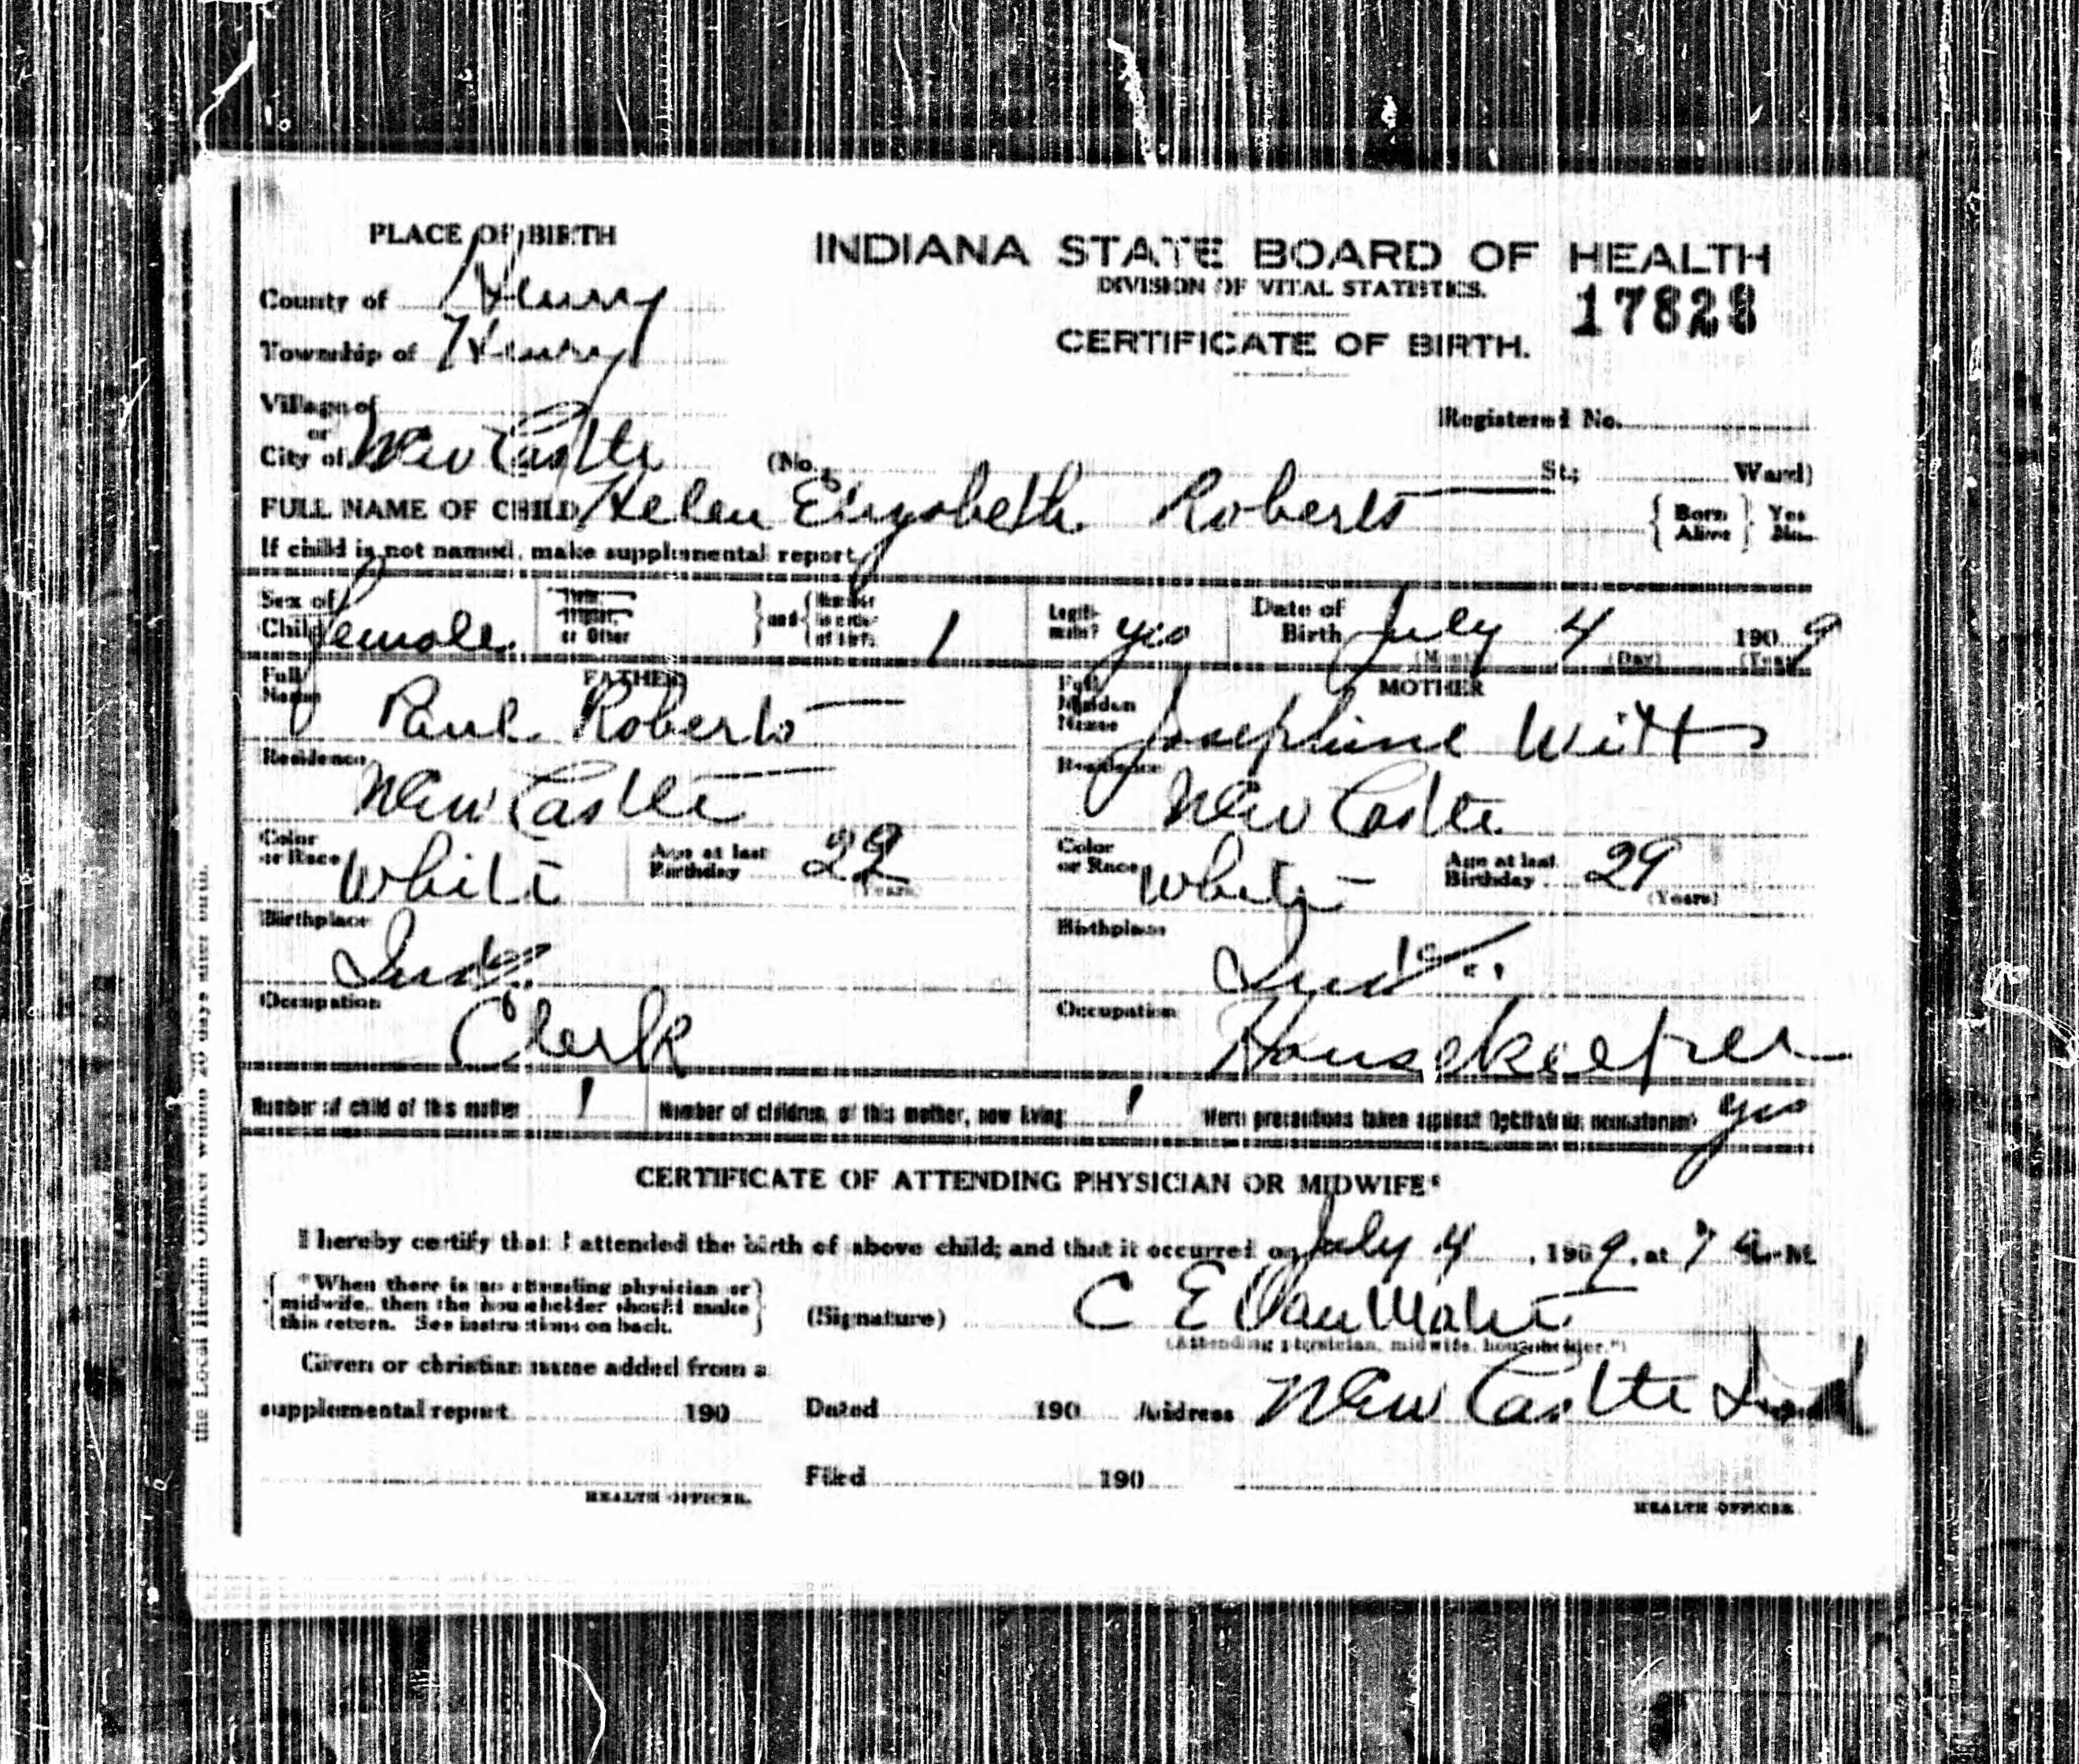 PLACE OF BIRTH
INDIANA STATE BOARD OF HEALTH
DIVISION OF VITAL STATISTICS.
17828
CERTIFICATE OF BIRTH.
County of Henry
Township of Henry
Village of
or
City of New Castle
Registered No.
(No. St; Ward)
FULL NAME OF CHILD Helen Elizabeth Roberts { Born Alive } Yes
If child is not named, make supplemental report
Sex of Child female
or Other } and { Number in order of birth 1
Legitimate? yes
Date of Birth July 4 1909
(Day) (Year)
FATHER
Full Name Paul Roberts
Residence New Castle
Color or Race White Age at last Birthday 22 (Years)
Birthplace Ind.
Occupation Clerk
MOTHER
Full Maiden Name Josephine Witt
Residence New Castle
Color or Race White Age at last Birthday 29 (Years)
Birthplace Ind.
Occupation Housekeeper
Number of child of this mother 1 Number of children, of this mother, now living 1 Were precautions taken against Ophthalmia neonatorum? yes
CERTIFICATE OF ATTENDING PHYSICIAN OR MIDWIFE*
I hereby certify that I attended the birth of above child; and that it occurred on July 4, 1909, at 7 a. M.
{ *When there is no attending physician or
midwife, then the householder should make
this return. See instructions on back. }
(Signature) C E
(Attending physician, midwife, householder.*)
Given or christian name added from a
supplemental report 190
Dated 190 Address New Castle Ind
Filed 190
HEALTH OFFICER.
HEALTH OFFICER.
the Local Health Officer within 20 days after birth.